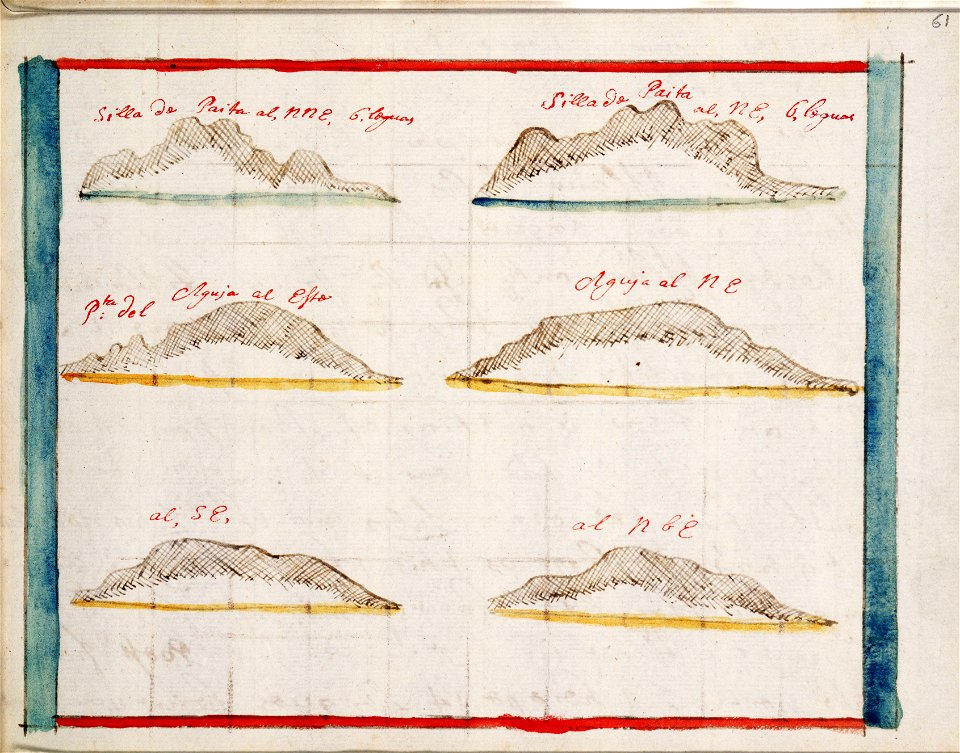 61
Silla de Paita al, NNE, 6, leguas
Silla de Paita
al, NE, 6, leguas
Pta: del Aguja al Este
Aguja al NE
al, SE,
al NbE